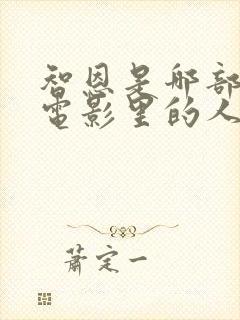 智恩是那部
电影里的人
萧定一